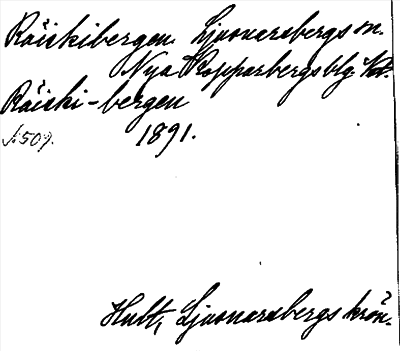 Räiskibergen Ljusnarsbergs sn.
Nya Kopparbergs blg.
Räiski-bergen
s. 509. 1891.
Hult, Ljusnarsbergs krön.